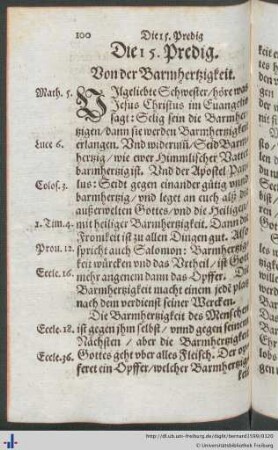 100 Die 15. Predig
Die 15. Predig.
Von der Barmhertzigkeit.
Math. 5. Vilgeliebte Schwester / höre was
Jesus Christus im Euangelio
sagt: Selig sein die Barmher-
tzigen / dann sie werden Barmhertzigkeit
Luce 6. erlangen. Vnd widerumb / Seid Barm-
hertzig / wie ewer Himmlischer Vatter
barmhertzig ist. Vnd der Apostel Pau-
Colos. 3. lus: Seidt gegen einander gütig vnd
barmhertzig / vnd leget an euch alß die
außerwelten Gottes / vnd die Heiligen
1. Tim. 4. mit heiliger Barmhertzigkeit. Dann die
Fromkeit ist zu allen Dingen gut. Also
Prou. 12. spricht auch Salomon: Barmhertzig-
keit würcken vnd das Vrtheil / ist Gott
Eccle. 16. mehr angenem dann das Opffer. Die
Barmhertzigkeit macht einem jedẽ platz
nach dem verdienst seiner Wercken.
Die Barmhertzigkeit des Menschen
Eccle. 18. ist gegen jhm selbst / vnnd gegen seinem
Nächsten / aber die Barmhertzigkeit
Eccle. 36. Gottes geht vber alles Fleisch. Der opf-
feret ein Opffer / welcher Barmhertzig-
keit
http://dl.ub.uni-freiburg.de/diglit/bernard1599/0120
© Universitätsbibliothek Freiburg